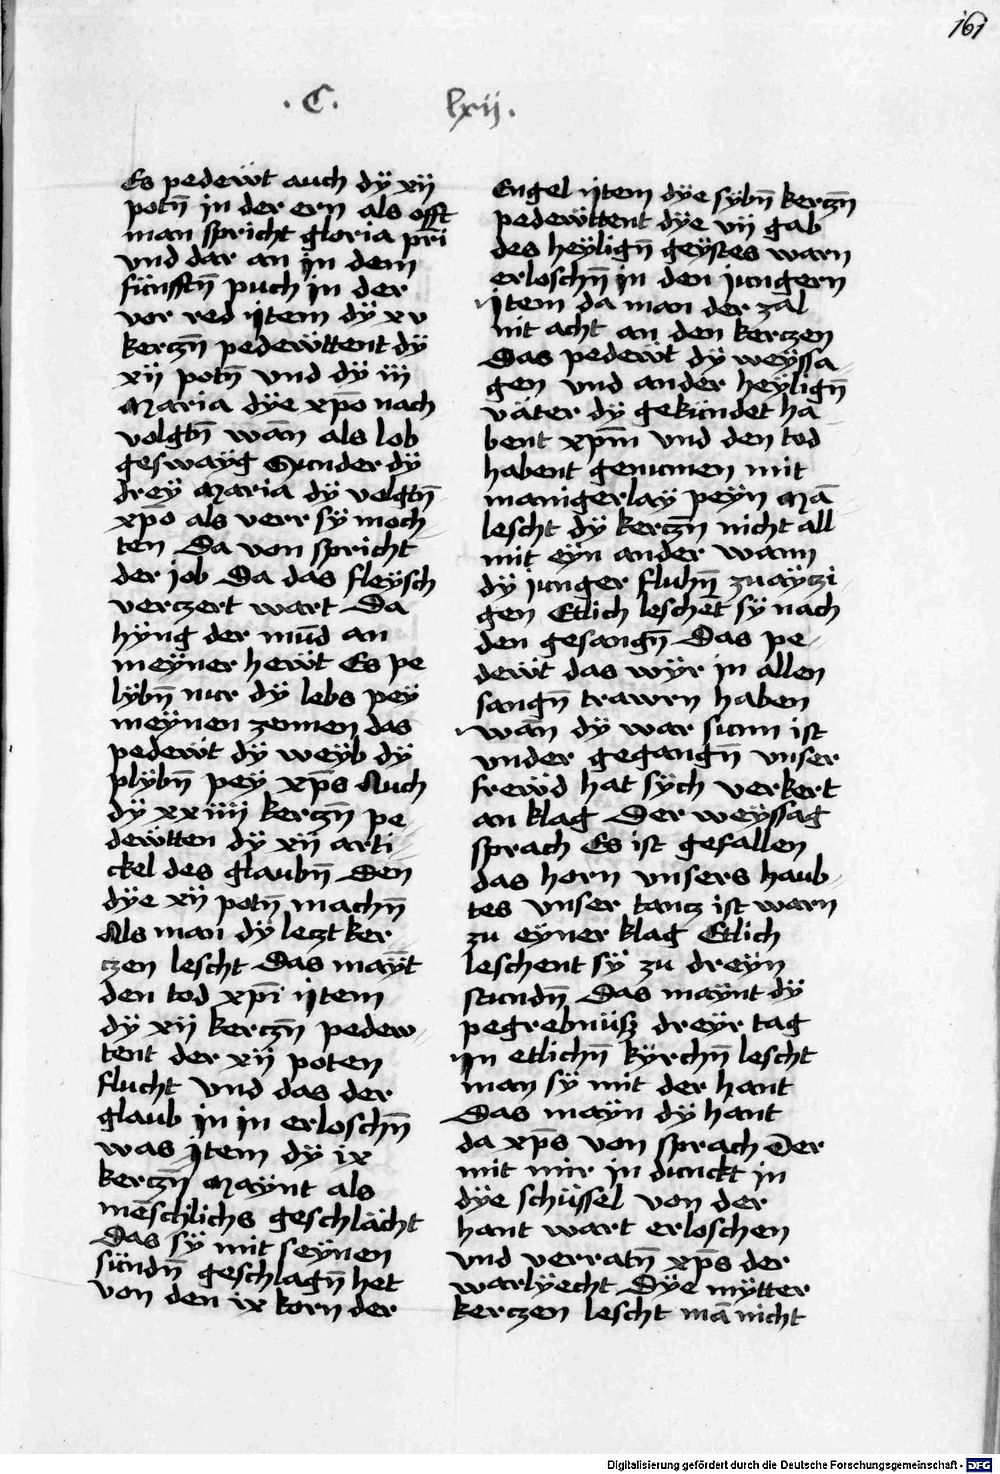 161
. C. lxij.
Es pedewt auch dÿ xij
potn̄ in der ern als offt
man spricht gloria pr̄i
vnd dar an in dem
fünfftn̄ puch in der
vor red ijtem dÿ xv
kerczn̄ pedewttent dÿ
xij potn̄ vnd dÿ iij
Maria dÿe xp̄o nach
volgtn̄ wān als lob
geswaÿg Sunder dÿ
dreÿ Maria dÿ volgtn̄
xp̄o als verr sÿ moch
ten Da von spricht
der job Da das fleÿsch
verczert wart Da
hÿng der mūd an
meÿner hewt Es pe
lÿbn̄ nur dÿ lebs peÿ
meÿnen zennen das
pedewt dÿ weÿb dÿ
plÿbn̄ peÿ xp̄s Auch
dÿ xxiiij kerczn̄ pe
dewtten dÿ xij arti
ckel des glaubn̄ Den
dÿe xij potn̄ machn̄
Als man dÿ leczt ker
czen lescht Das maÿt
den tod xp̄i ijtem
dÿ xij kerczn̄ pedew
tent der xij poten
flucht vnd das der
glaub in in erloschn̄
was jtem dÿ ix
kerczn̄ Maÿnt als
mēschlichs geschlächt
Das sÿ mit seÿnen
sündn̄ geschlagn̄ het
von den ix korn der
Engel ijtem dÿe sÿbn̄ kerczn̄
pedewttent dÿe vij gab
des heÿlign̄ geÿstes warn
erloschn̄ in den jungern
ijtem da man der zal
nit acht an den kerczen
Das pedewt dÿ weÿssa
gen vnd ander heÿlign̄
väter dÿ gekündet ha
bent xp̄m vnd den tod
habent genumen mit
manigerlaÿ peÿn Mā
lescht dÿ kerczn̄ nicht all
mit eÿn ander wann
dÿ junger fluhn̄ zuaÿczi
gen Etlich leschēt sÿ nach
den gesangn̄ Das pe
dewt das wÿr in allen
sangn̄ trawrn haben
wān dÿ war sunn ist
vnder gegangn̄ vnser
frewd hat sÿch verkert
an klag Der weÿssag
sprach Es ist gefallen
das horn vnsers haub
tes vnser tancz ist warn
zu eÿner klag Etlich
leschent sÿ zu dreÿn
stundn̄ Das maÿnt dÿ
pegrebnüsz dreÿr tag
In etlichn̄ kÿrchn̄ lescht
man sÿ mit der hant
Das maÿn dÿ hant
da xp̄s von sprach Der
mit mir in dunckt in
dÿe schüssel von der
hant wart erloschen
vnd verratn̄ xp̄s der
warlÿecht Dÿe mÿtter
kerczen lescht mā nicht
Digitalisierung gefördert durch die Deutsche Forschungsgemeinschaft - DFG